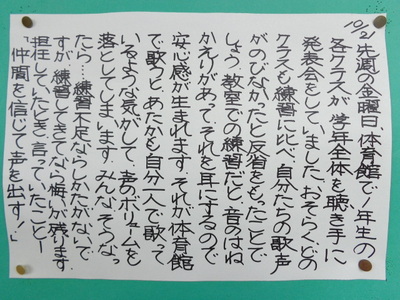 10/21
先週の金曜日、体育館で1年生の
各クラスが、学年全体を聴き手に
発表会をしていました。おそらく、どの
クラスも練習に比べ、自分たちの歌声
がのびなかったと反省をもったことで
しょう。教室での練習だと、音のはね
かえりがあって、それを耳にするので
安心感が生まれます。それが体育館
で歌うと、あたかも自分一人で歌って
いるような気がして、声のボリュームを
落としてしまいます。みんながそうなっ
たら…。練習不足ならしかたがないで
すが、練習してきてなら悔いが残ります。
担任していたとき言っていたことー
「仲間を信じて声を出す！」